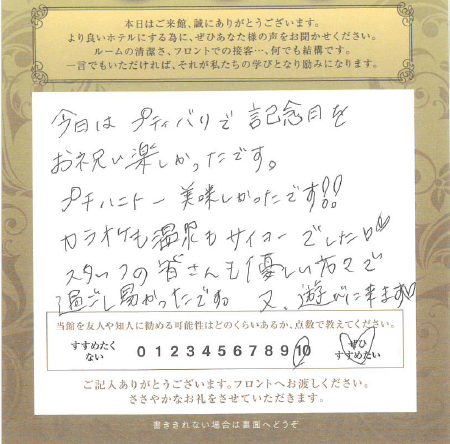 本日はご来館、誠にありがとうございます。
より良いホテルにする為に、ぜひあなた様の声をお聞かせください。
ルームの清潔さ、フロントでの接客…、何でも結構です。
一言でもいただければ、それが私たちの学びとなり励みになります。
今日は プティバリで 記念日を
お祝い楽しかったです。
プチハニトー 美味しかったです!!
カラオケも温泉もサイコーでした
スタッフの皆さんも優しい方々で
過ごし易かったです。 又、遊びに来ます♡
当館を友人や知人に勧める可能性はどのくらいあるか、点数で教えてください。
すすめたくない 0 1 2 3 4 5 6 7 8 9 10 ぜひすすめたい
ご記入ありがとうございます。フロントへお渡しください。
ささやかなお礼をさせていただきます。
書ききれない場合は裏面へどうぞ